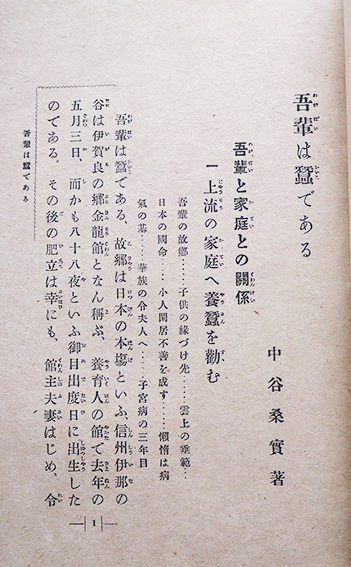 吾輩は蠶である
中谷桑實著
吾輩と家庭との關係
一上流の家庭へ養蠶を勸む
吾輩の故鄕……子供の緣づけ先……雲上の垂範…
日本の國命……小人閑居不善を成す……懶惰は病
氣の基……華族の令夫人へ……子宮病の三年目
吾輩は蠶である、故鄕は日本の本塲といふ、信州伊那の
谷は伊賀良の鄕金龍館となん稱ぶ、養育人の館で去年の
五月三日、而かも八十八夜といふ御目出度日に出生した
のである。その後の肥立は幸にも、館主夫妻はじめ、令
吾輩は蠶である
1